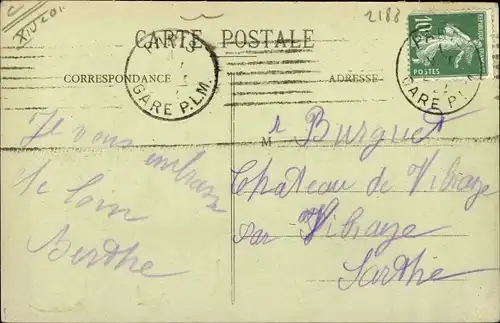 XIV 201
2188
CARTE POSTALE
CORRESPONDANCE
ADRESSE
PARIS
GARE P.L.M.
10
POSTES
GARE P.L.M.
Je vous embrasse
de loin
Berthe
M r Burguet
Chateau de Vibraye
par Vibraye
Sarthe